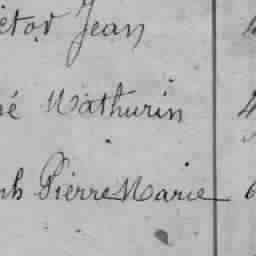 ctor Jean
né Mathurin 4
ph Pierre Marie 6